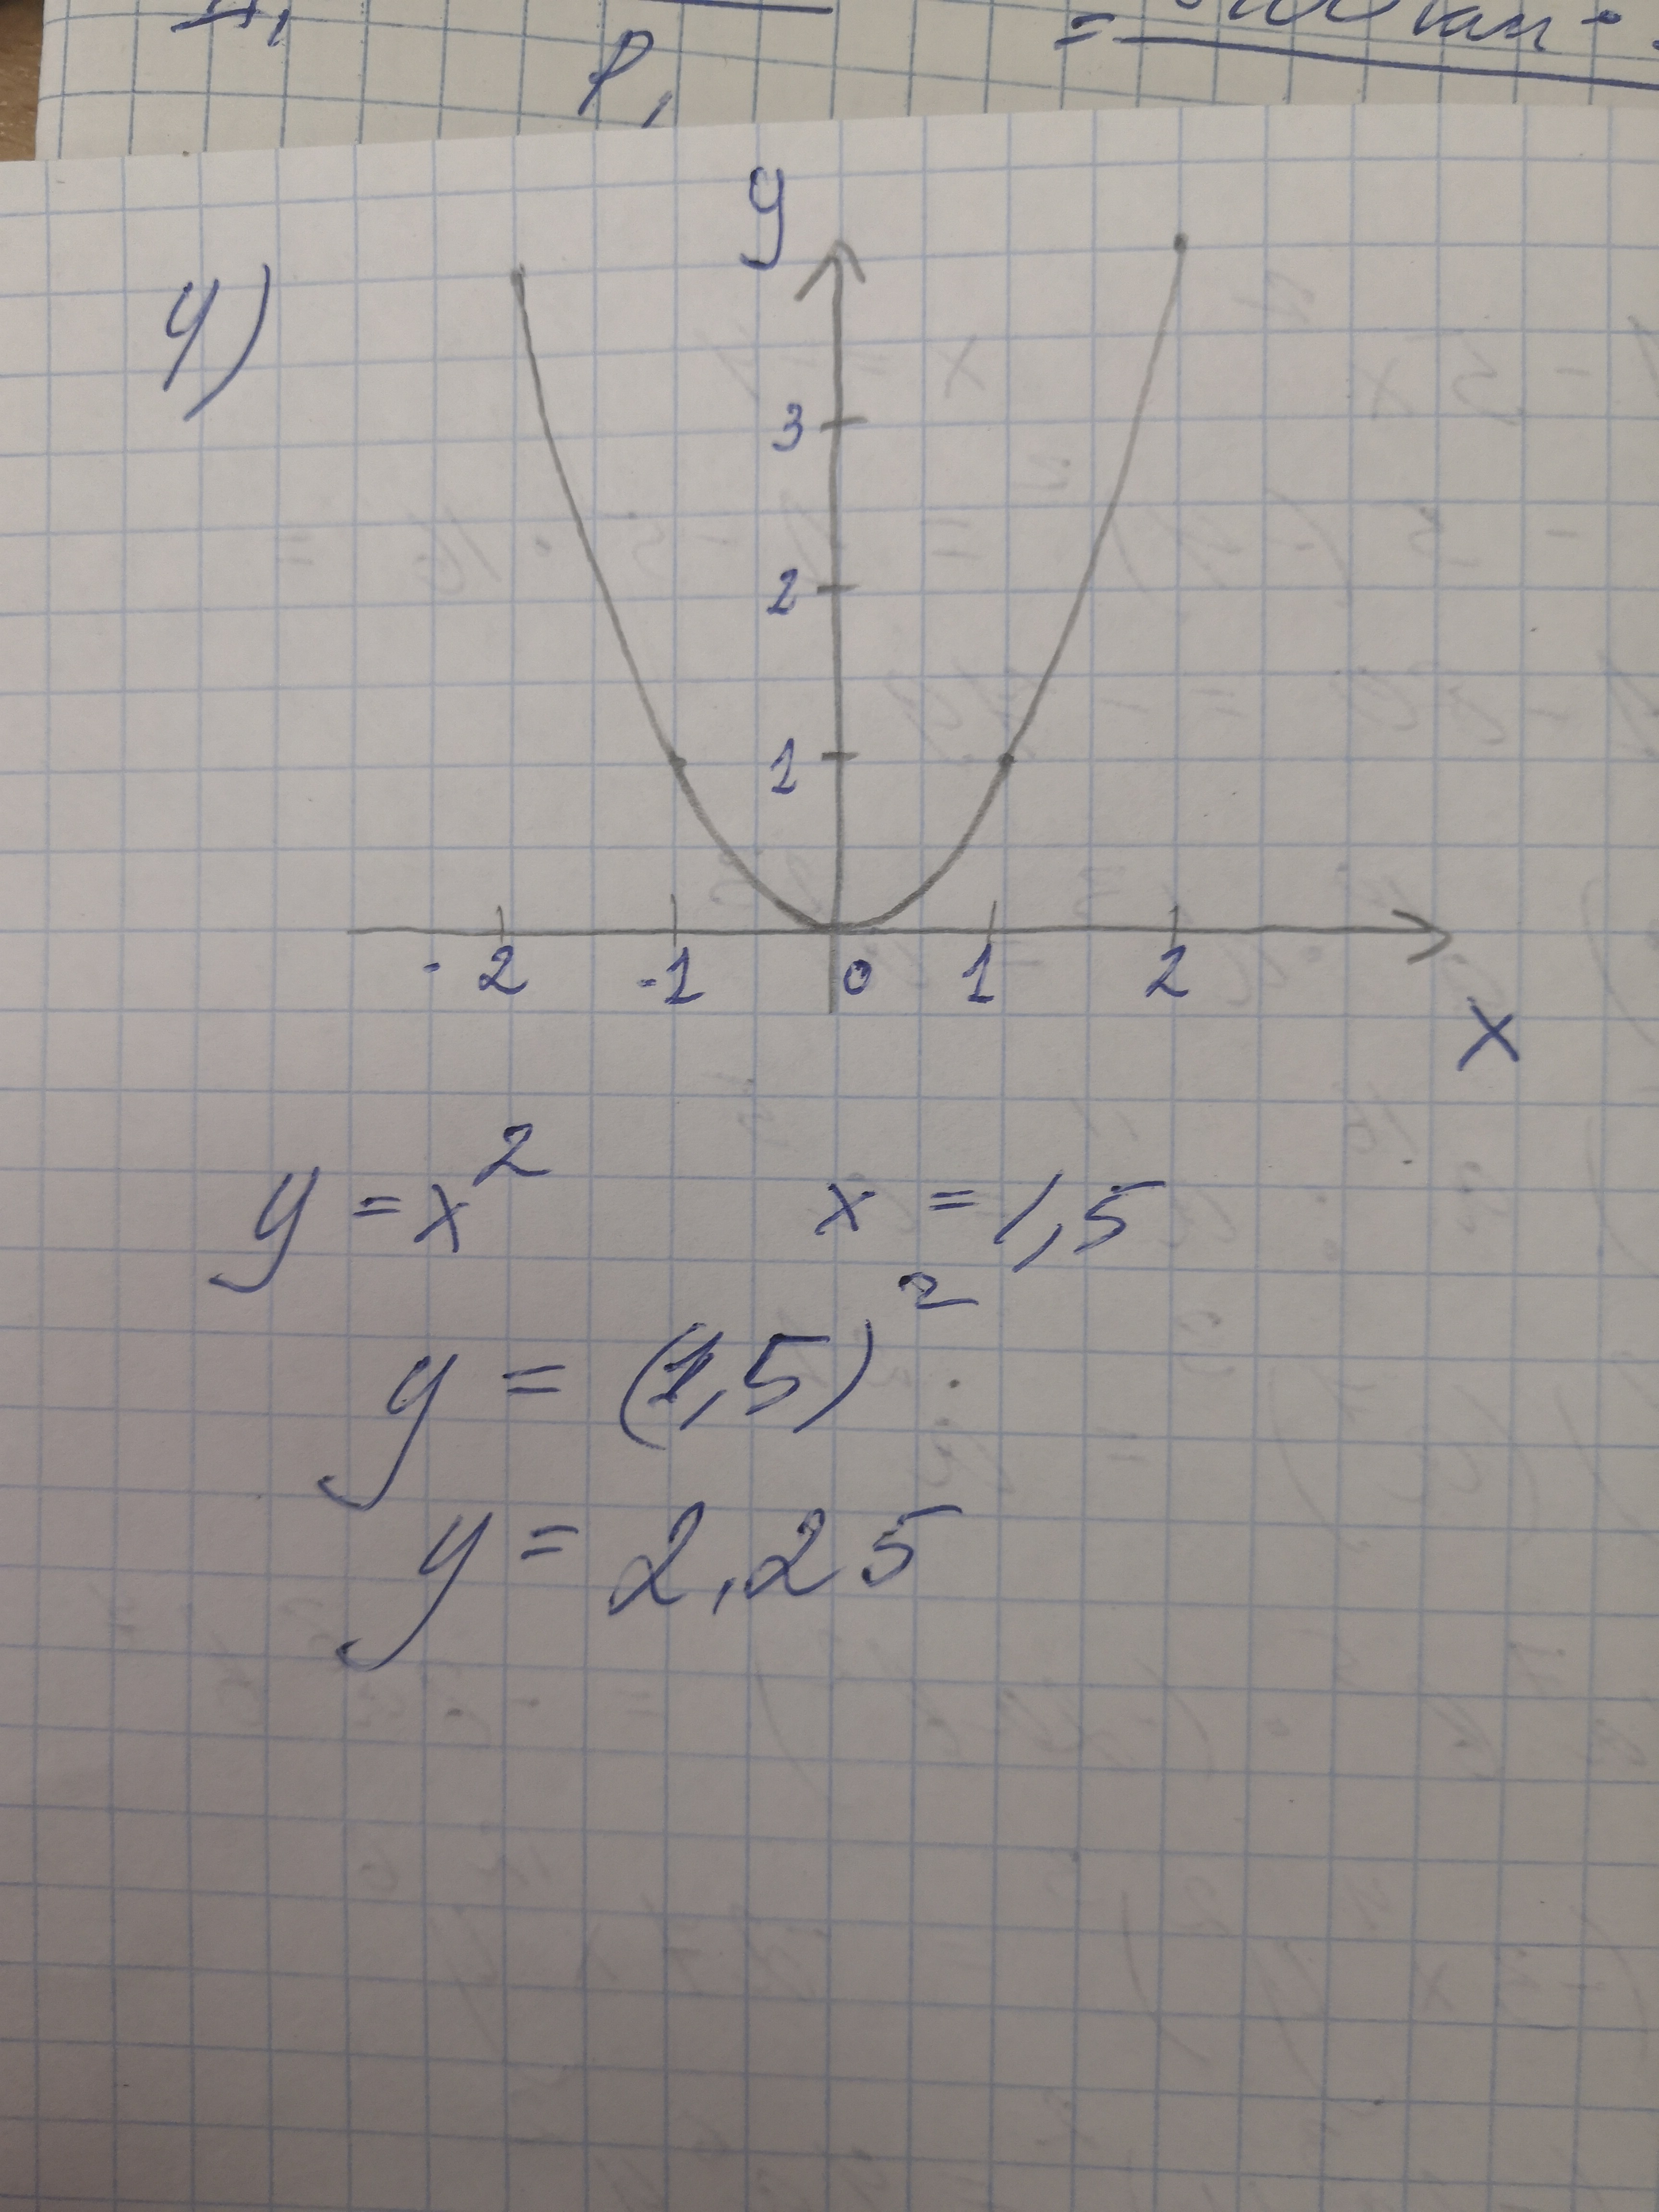 P₁
=
y
4)
3
2
1
-2 -1 0 1 2
x
y = x² x = 1,5
y = (1,5)²
y = 2,25